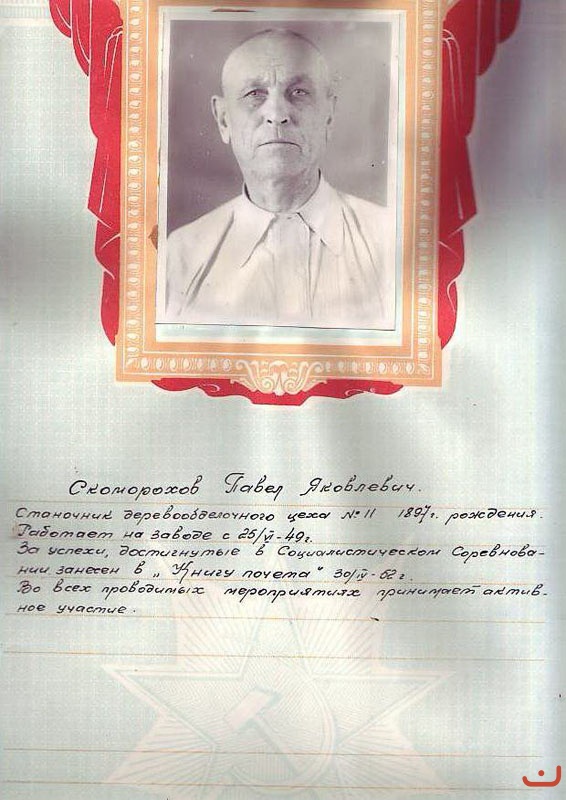 Скоморохов Павел Яковлевич.
Станочник деревообделочного цеха №11 1897г. рождения.
Работает на заводе с 25/VI-49г.
За успехи, достигнутые в Социалистическом Соревнова-
нии занесен в „Книгу почета" 30/IV-52г.
Во всех проводимых мероприятиях принимает актив-
ное участие.